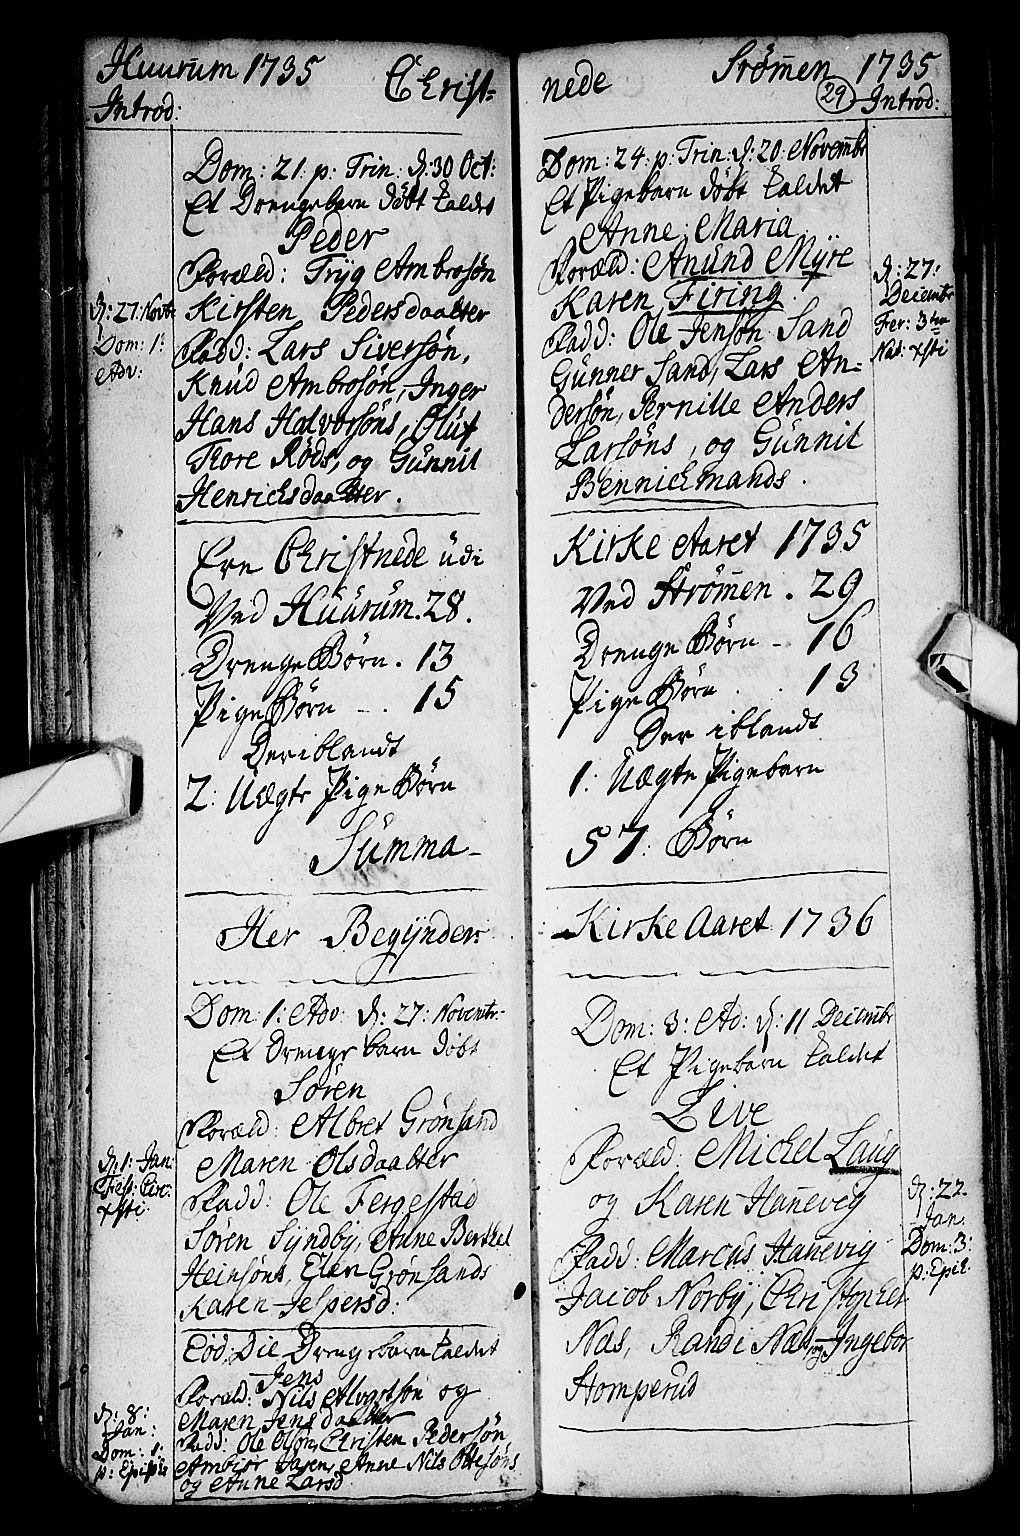 Huurum 1735 Christ-
Introd:
Dom: 21. p: Trin: d: 30 Oct:
Et Drengebarn döbt kaldet
Peder
Foræld: Tryg Ambrosøn
Kirsten Pedersdaatter
Fadd: Lars Siversøn,
Knud Ambrosøn, Inger
Hans Halvorsøns, Oluf
Tore Røds, og Gunnil
Henrichsdaatter.
d: 27: Novbr
Dom: 1:
Adv:
Ere Christnede udi
Ved Huurum. 28.
Drenge Børn. 13
Pige Børn - . 15
Deriblandt
2: Uægte Pige Børn
Summa -
Her Begynder:
Dom: 1: Adv: d: 27: Novembr:
Et Drenge barn döbt
Søren
Foræld: Albret Grønsand
Maren Olsdaatter
Fadd: Ole Fergestad
Søren Syndby, Anne Berthel
Heinsøns, Elen Grønsands
Karen Jespersd:
d: 1: Jan:
Fest: Circ:
Xsti
Eod: Die Drengebarn kaldet
Jens
Foræld: Nils Alvartsøn og
Maren Jensdaatter
Fadd: Ole Olsøn, Christen Pedersøn
Ambiør Anne Nils Ottesøns
og Anne Larsd
d: 8:
Jan:
Dom: 1:
p: Epiph
nede Strømen 1735
29 Introd:
Dom: 24. p: Trin: d: 20: Novembr
Et Pigebarn döbt kaldet
Anne Maria
Foræld: Anund Myre
Karen Firing.
Fadd: Ole Jensøn Sand
Gunner Sand, Lars An-
dersøn, Pernille Anders
Larsøns, og Gunnil
Bennichmands.
d: 27:
Decembr
Fer: 3tia
Nat: Xsti
Kirke Aaret 1735
Ved Strømen. 29
Drenge Børn - 16
Pige Børn . . 13
Der iblandt
1: Uægte Pigebarn
57: Børn
Kirke Aaret 1736
Dom: 3: Ad: d: 11 Decembr
Et Pigebarn kaldet
Live
Foræld: Michel Laug
og Karen Hanevig
Fadd: Marcus Hanevig
Jacob Norby, Christopher
Næs, Randi Næs, og Ingebor
Stomperud
d: 22
Jan:
Dom: 3:
p: Epip.